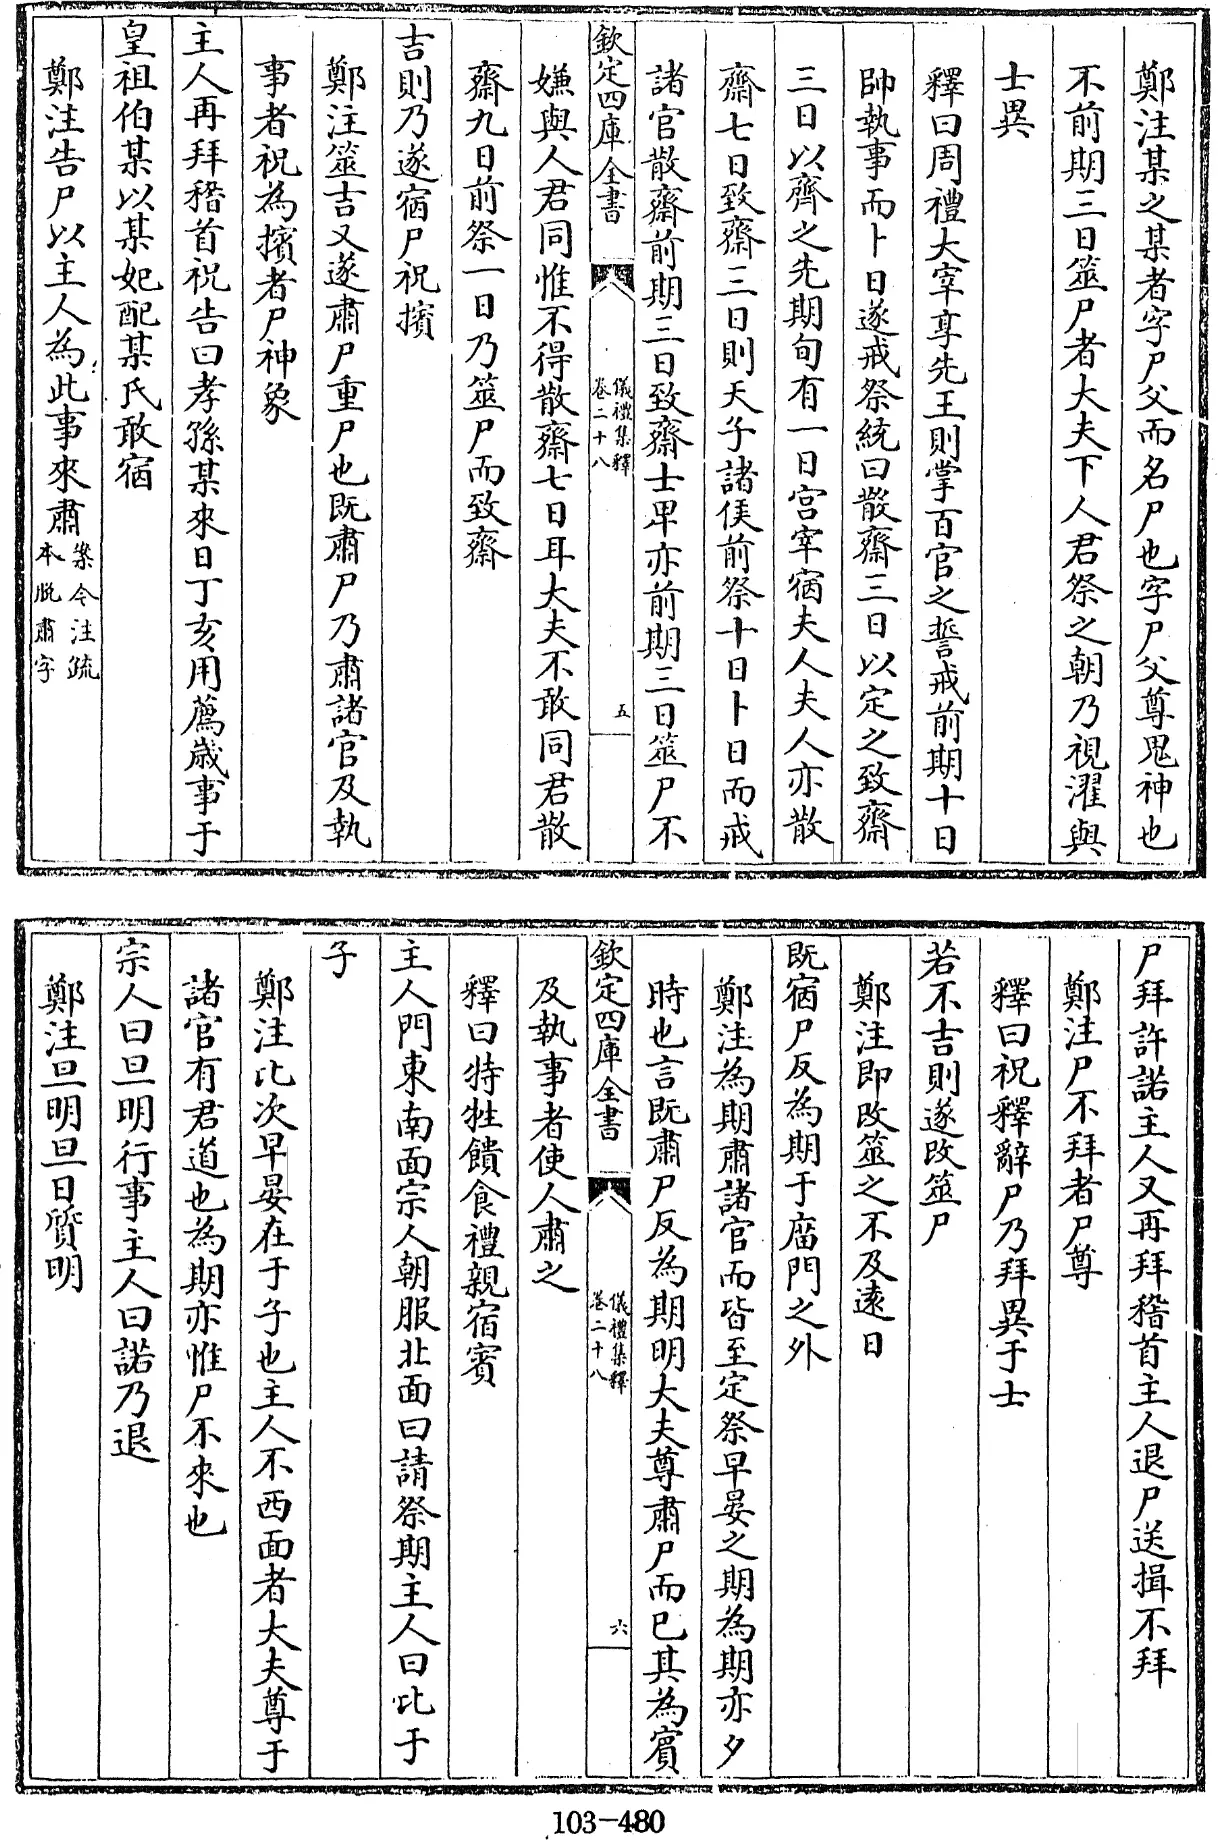 鄭注某之某者字尸父而名尸也字尸父尊鬼神也
不前期三日筮尸者大夫下人君祭之朝乃視濯與
士異
釋曰周禮大宰享先王則掌百官之誓戒前期十日
帥執事而卜日遂戒祭統曰散齋三日以定之致齋
三日以齊之先期旬有一日宫宰宿夫人夫人亦散
齋七日致齋三日則天子諸侯前祭十日卜日而戒
諸官散齋前期三日致齋士卑亦前期三日筮尸不
欽定四庫全書
儀禮集釋
卷二十八
五
嫌與人君同惟不得散齋七日耳大夫不敢同君散
齋九日前祭一日乃筮尸而致齋
吉則乃遂宿尸祝擯
鄭注筮吉又遂肅尸重尸也既肅尸乃肅諸官及執
事者祝為擯者尸神象
主人再拜稽首祝告曰孝孫某來日丁亥用薦歲事于
皇祖伯某以某妃配某氏敢宿
鄭注告尸以主人為此事來肅
案今注疏
本脱肅字
尸拜許諾主人又再拜稽首主人退尸送揖不拜
鄭注尸不拜者尸尊
釋曰祝釋辭尸乃拜異于士
若不吉則遂改筮尸
鄭注即改筮之不及遠日
既宿尸反為期于廟門之外
鄭注為期肅諸官而皆至定祭早晏之期為期亦夕
時也言既肅尸反為期明大夫尊肅尸而已其為賓
欽定四庫全書
儀禮集釋
卷二十八
六
及執事者使人肅之
釋曰特牲饋食禮親宿賓
主人門東南面宗人朝服北面曰請祭期主人曰比于
子
鄭注比次早晏在于子也主人不西面者大夫尊于
諸官有君道也為期亦惟尸不來也
宗人曰旦明行事主人曰諾乃退
鄭注旦明旦日質明
103-480